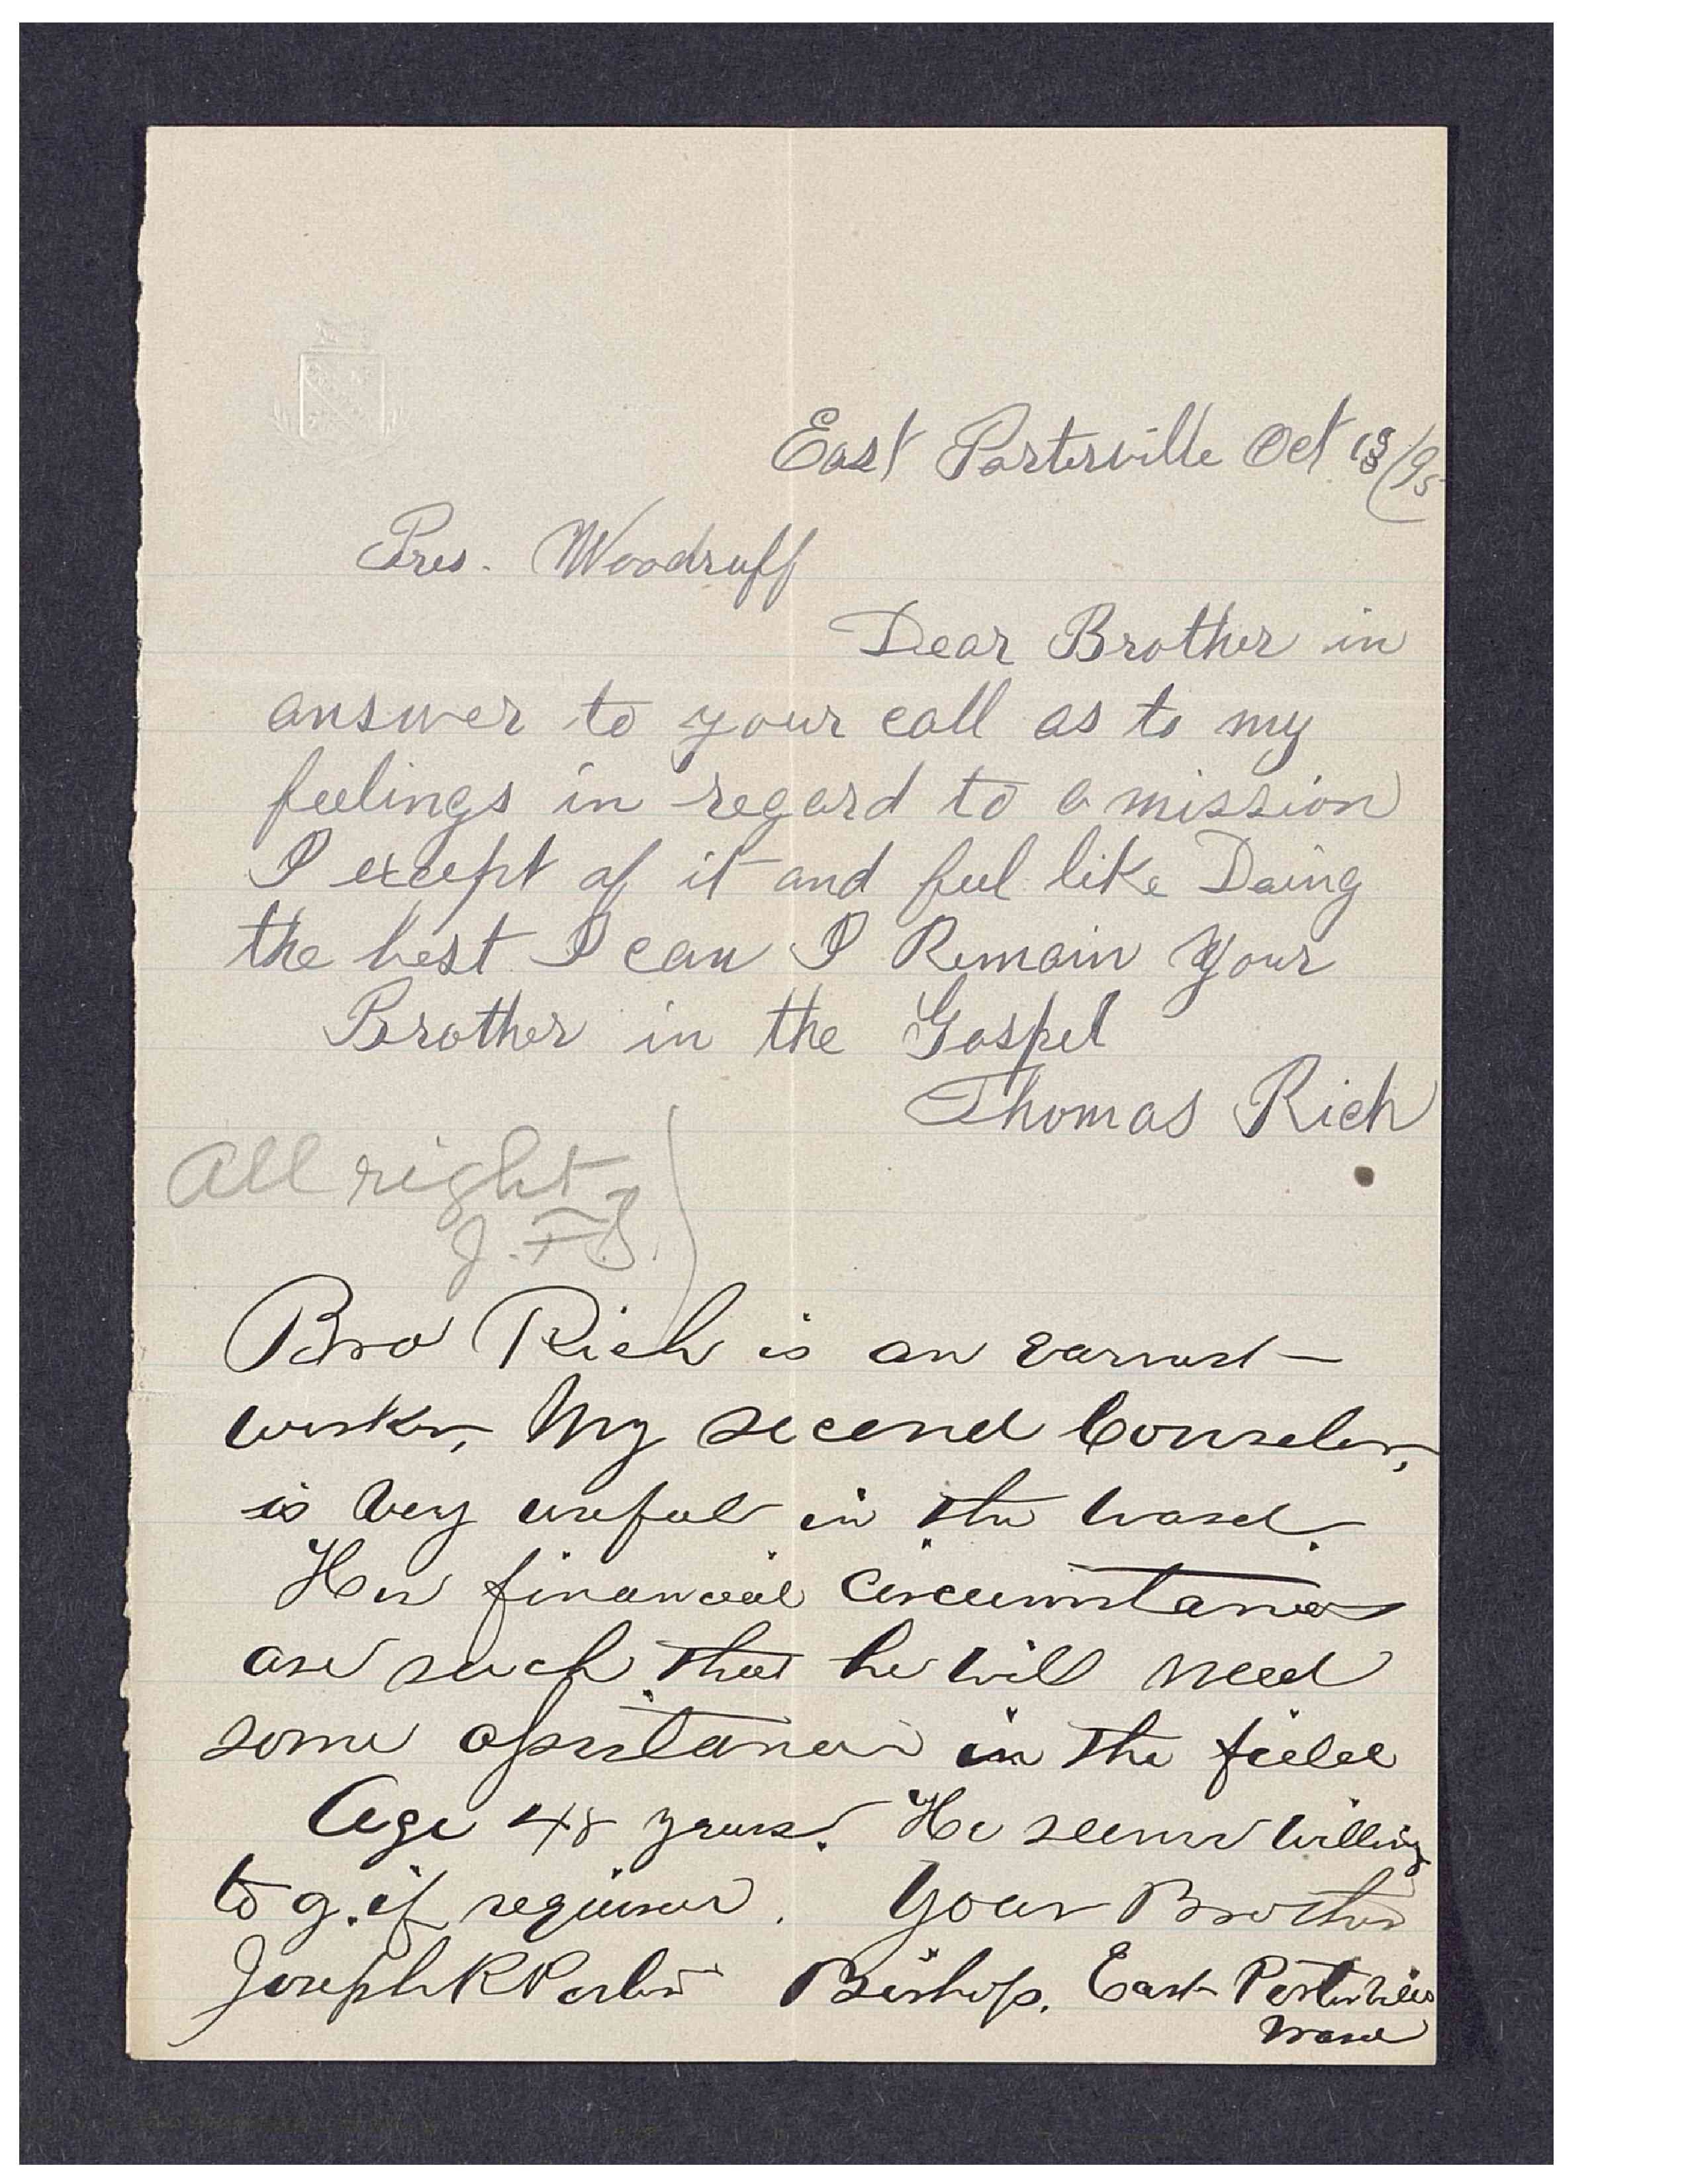 East Porterville Oct 18/95
Pres. Woodruff
Dear Brother in
answer to your call as to my
feelings in regard to a mission
I except of it and feel like Doing
the best I can I Remain Your
Brother in the Gospel
Thomas Rich
All right
J. F. S.
Bro Rich is an earnest
worker, My second Counselor,
is very useful in the ward.
His financial circumstances
are such that he will need
some assistance in the field
Age 48 years. He seems willing
to go if required. Your Brother
Joseph R Porter Bishop. East Porterville
Ward